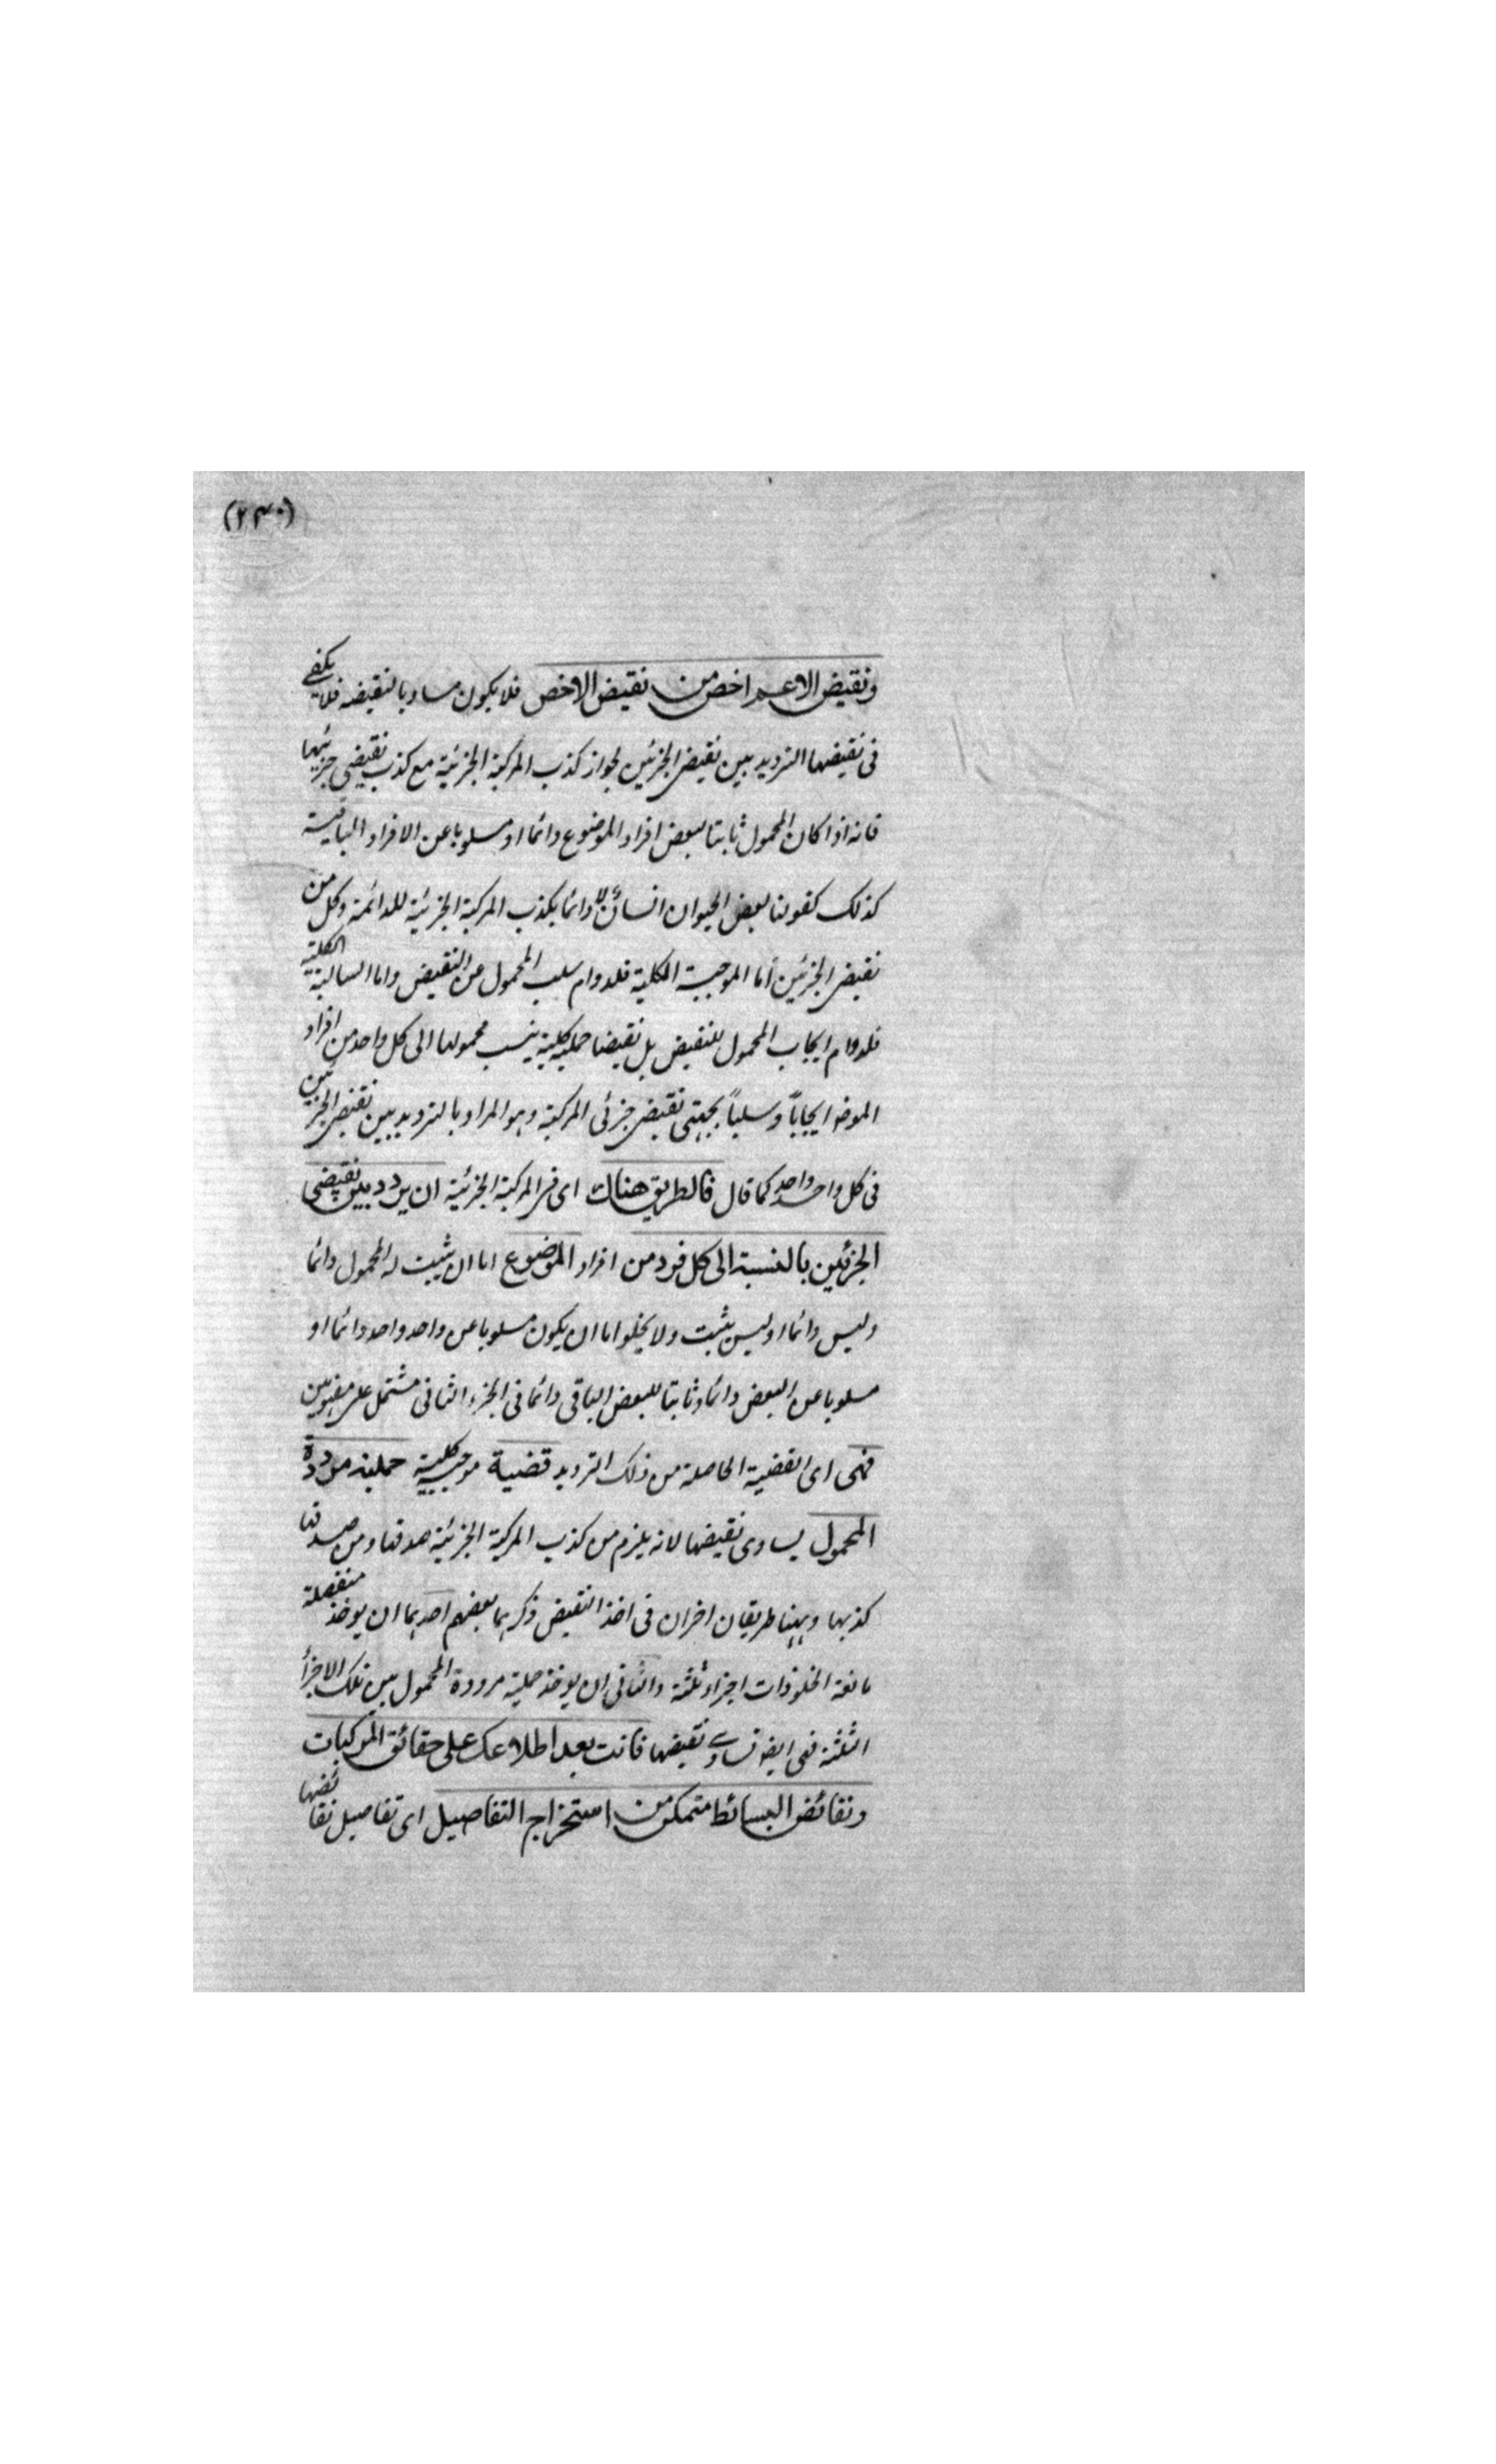 (٢٣٠)
ونقيض الاعم اخص من نقيض الاخص فلا يكون مساويا لنقيضه فلا يكفى
فى نقيضها الترديد بين نقيض الجزئين لجواز كذب المركبة الجزئية مع كذب نقيضى جزئيها
فانه اذا كان المحمول ثابتا لبعض افراد الموضوع دائما او مسلوبا عن الافراد الباقية
كذلك كقولنا بعض الحيوان انسان لا دائما يكذب المركبة الجزئية للدائمة وكل من
نقيض الجزئين اما الموجبة الكلية فلدوام سلب المحمول عن النقيض واما السالبة الكلية
فلدوام ايجاب المحمول للنقيض بل نقيضا حملية كلية ينسب محمولها الى كل واحد من افراد
الموضوع ايجاباً وسلباً بجهتى نقيض جزئى المركبة وهو المراد بالترديد بين نقيض الجزئين
فى كل واحد واحد كما قال فالطريق هناك اى فى المركبة الجزئية ان يردد بين نقيضى
الجزئين بالنسبة الى كل فرد من افراد الموضوع اما ان يثبت له المحمول دائما
وليس دائما او ليس يثبت ولا يخلو اما ان يكون مسلوبا عن واحد واحد دائما او
مسلوبا عن البعض دائما وثابتا للبعض الباقى دائما فى الجزء الثانى مشتمل على مفهومين
فهى اى القضية الحاصلة من ذلك الترديد قضية موجبة كلية حملية مرددة
المحمول يساوى نقيضها لانه يلزم من كذب المركبة الجزئية صدقها ومن صدقها
كذبها وههنا طريقان اخران فى اخذ النقيض ذكرهما بعضهم احدهما ان يوخذ منفصلة
مانعة الخلو ذات اجزاء ثلثة والثانى ان يوخذ حملية مرددة المحمول بين تلك الاجزأ
الثلثة فهى ايضا تساوى نقيضها فانت بعد اطلاعك على حقائق المركبات
ونقائض البسائط متمكن من استخراج التفاصيل اى تفاصيل نقائضها